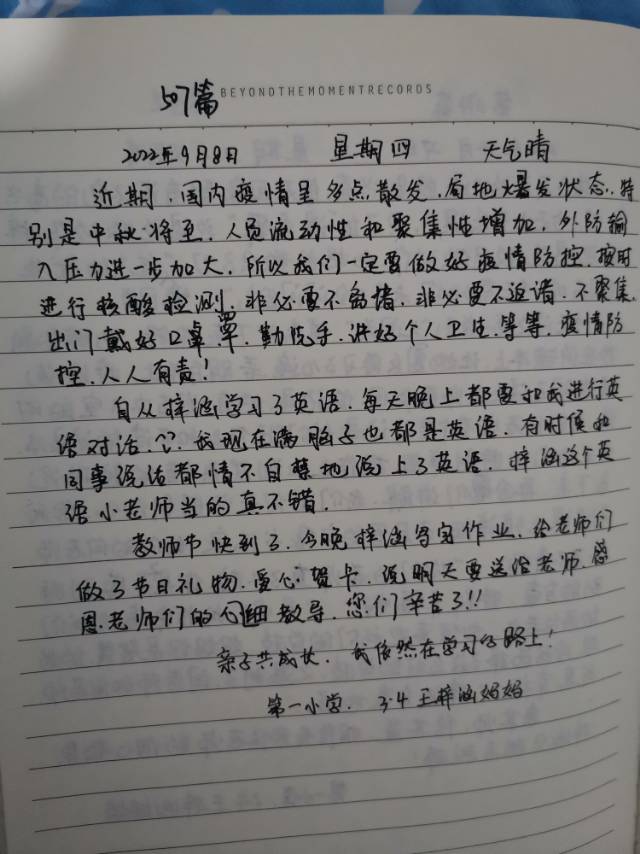 507篇 BEYONDTHEMOMENTRECORDS
2022年9月8日 星期四 天气晴
近期,国内疫情呈多点散发,局地爆发状态,特
别是中秋将至,人员流动性和聚集性增加,外防输
入压力进一步加大,所以我们一定要做好疫情防控,按时
进行核酸检测,非必要不离堵,非必要不返诸,不聚集,
出门戴好口罩罩,勤洗手,讲好个人卫生,等等,疫情防
控,人人有责!
自从梓涵学习了英语,每天晚上都要和我进行英
语对话,??我现在满脑子也都是英语,有时候和
同事说话都情不自禁地说上了英语,梓涵这个英
语小老师当的真不错.
教师节快到了,今晚梓涵写完作业,给老师们
做了节日礼物,爱心贺卡,说明天要送给老师,感
恩老师们的细教导,您们辛苦了!!
亲子共成长,我依然在学习的路上!
第一小学. 3.4王梓涵妈妈